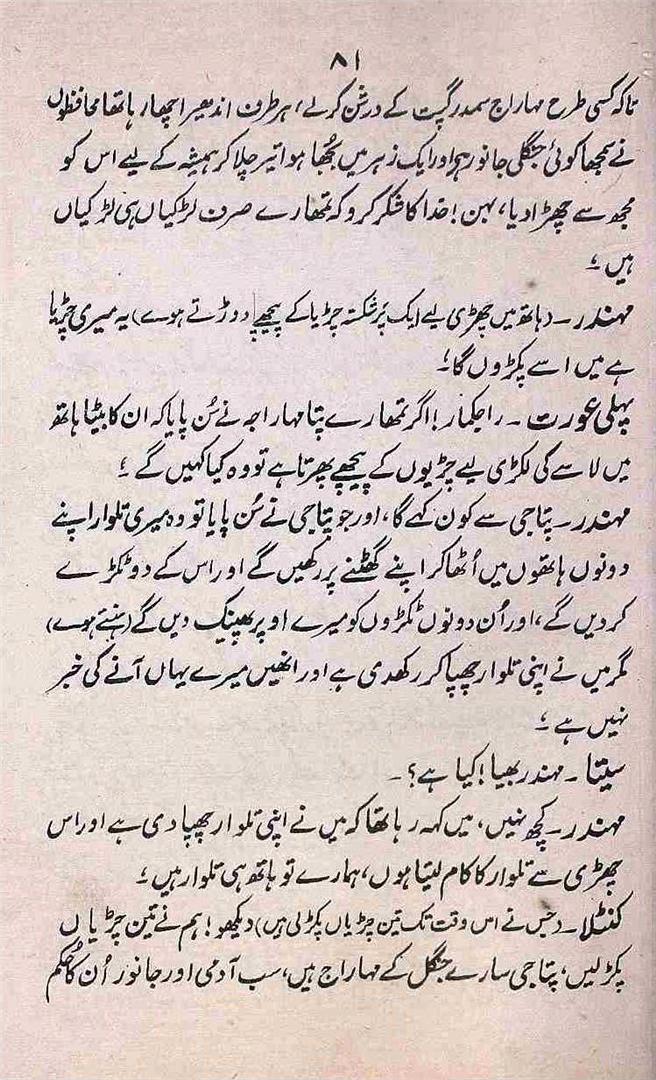 ۸۱
تاکہ کسی طرح مہاراج سمدر گپت کے درشن کرلے، ہر طرف اندھیرا چھا رہا تھا محافظوں
نے سمجھا کوئی جنگلی جانور ہے اور ایک زہر میں بجھا ہوا تیر چلا کر ہمیشہ کے لیے اس کو
مجھ سے چھڑا دیا، بہن! خدا کا شکر کرو کہ تمھارے صرف لڑکیاں ہی لڑکیاں
ہیں ؛
مہندر۔ (ہاتھ میں چھڑی لیے ایک پر شکستہ چڑیا کے پیچھے دوڑتے ہوے) یہ میری چڑیا
ہے میں اسے پکڑوں گا ؛
پہلی عورت ۔ راجکمار! اگر تمھارے پتا مہاراجہ نے سُن پایا کہ ان کا بیٹا ہاتھ
میں لاسے کی لکڑی لیے چڑیوں کے پیچھے پھرتا ہے تو وہ کیا کہیں گے ؛
مہندر۔ پتاجی سے کون کہے گا، اور جو پتاجی نے سُن پایا تو وہ میری تلوار اپنے
دونوں ہاتھوں میں اُٹھا کر اپنے گھٹنے پر رکھیں گے اور اس کے دو ٹکڑے
کر دیں گے، اور اُن دونوں ٹکڑوں کو میرے اوپر پھینک دیں گے (ہنستے ہوے)
مگر میں نے اپنی تلوار چھپا کر رکھدی ہے اور انھیں میرے یہاں آنے کی خبر
نہیں ہے ؛
سیتا ۔ مہندر بھیا! کیا ہے؟ ۔
مہندر۔ کچھ نہیں، میں کہہ رہا تھا کہ میں نے اپنی تلوار چھپا دی ہے اور اس
چھڑی سے تلوار کا کام لیتا ہوں، ہمارے تو ہاتھ ہی تلوار ہیں ؛
کنٹلا۔ (جس نے اس وقت تک تین چڑیاں پکڑلی ہیں) دیکھو! ہم نے تین چڑیاں
پکڑلیں، پتاجی سارے جنگل کے مہاراج ہیں، سب آدمی اور جانور اُن کا حُکم